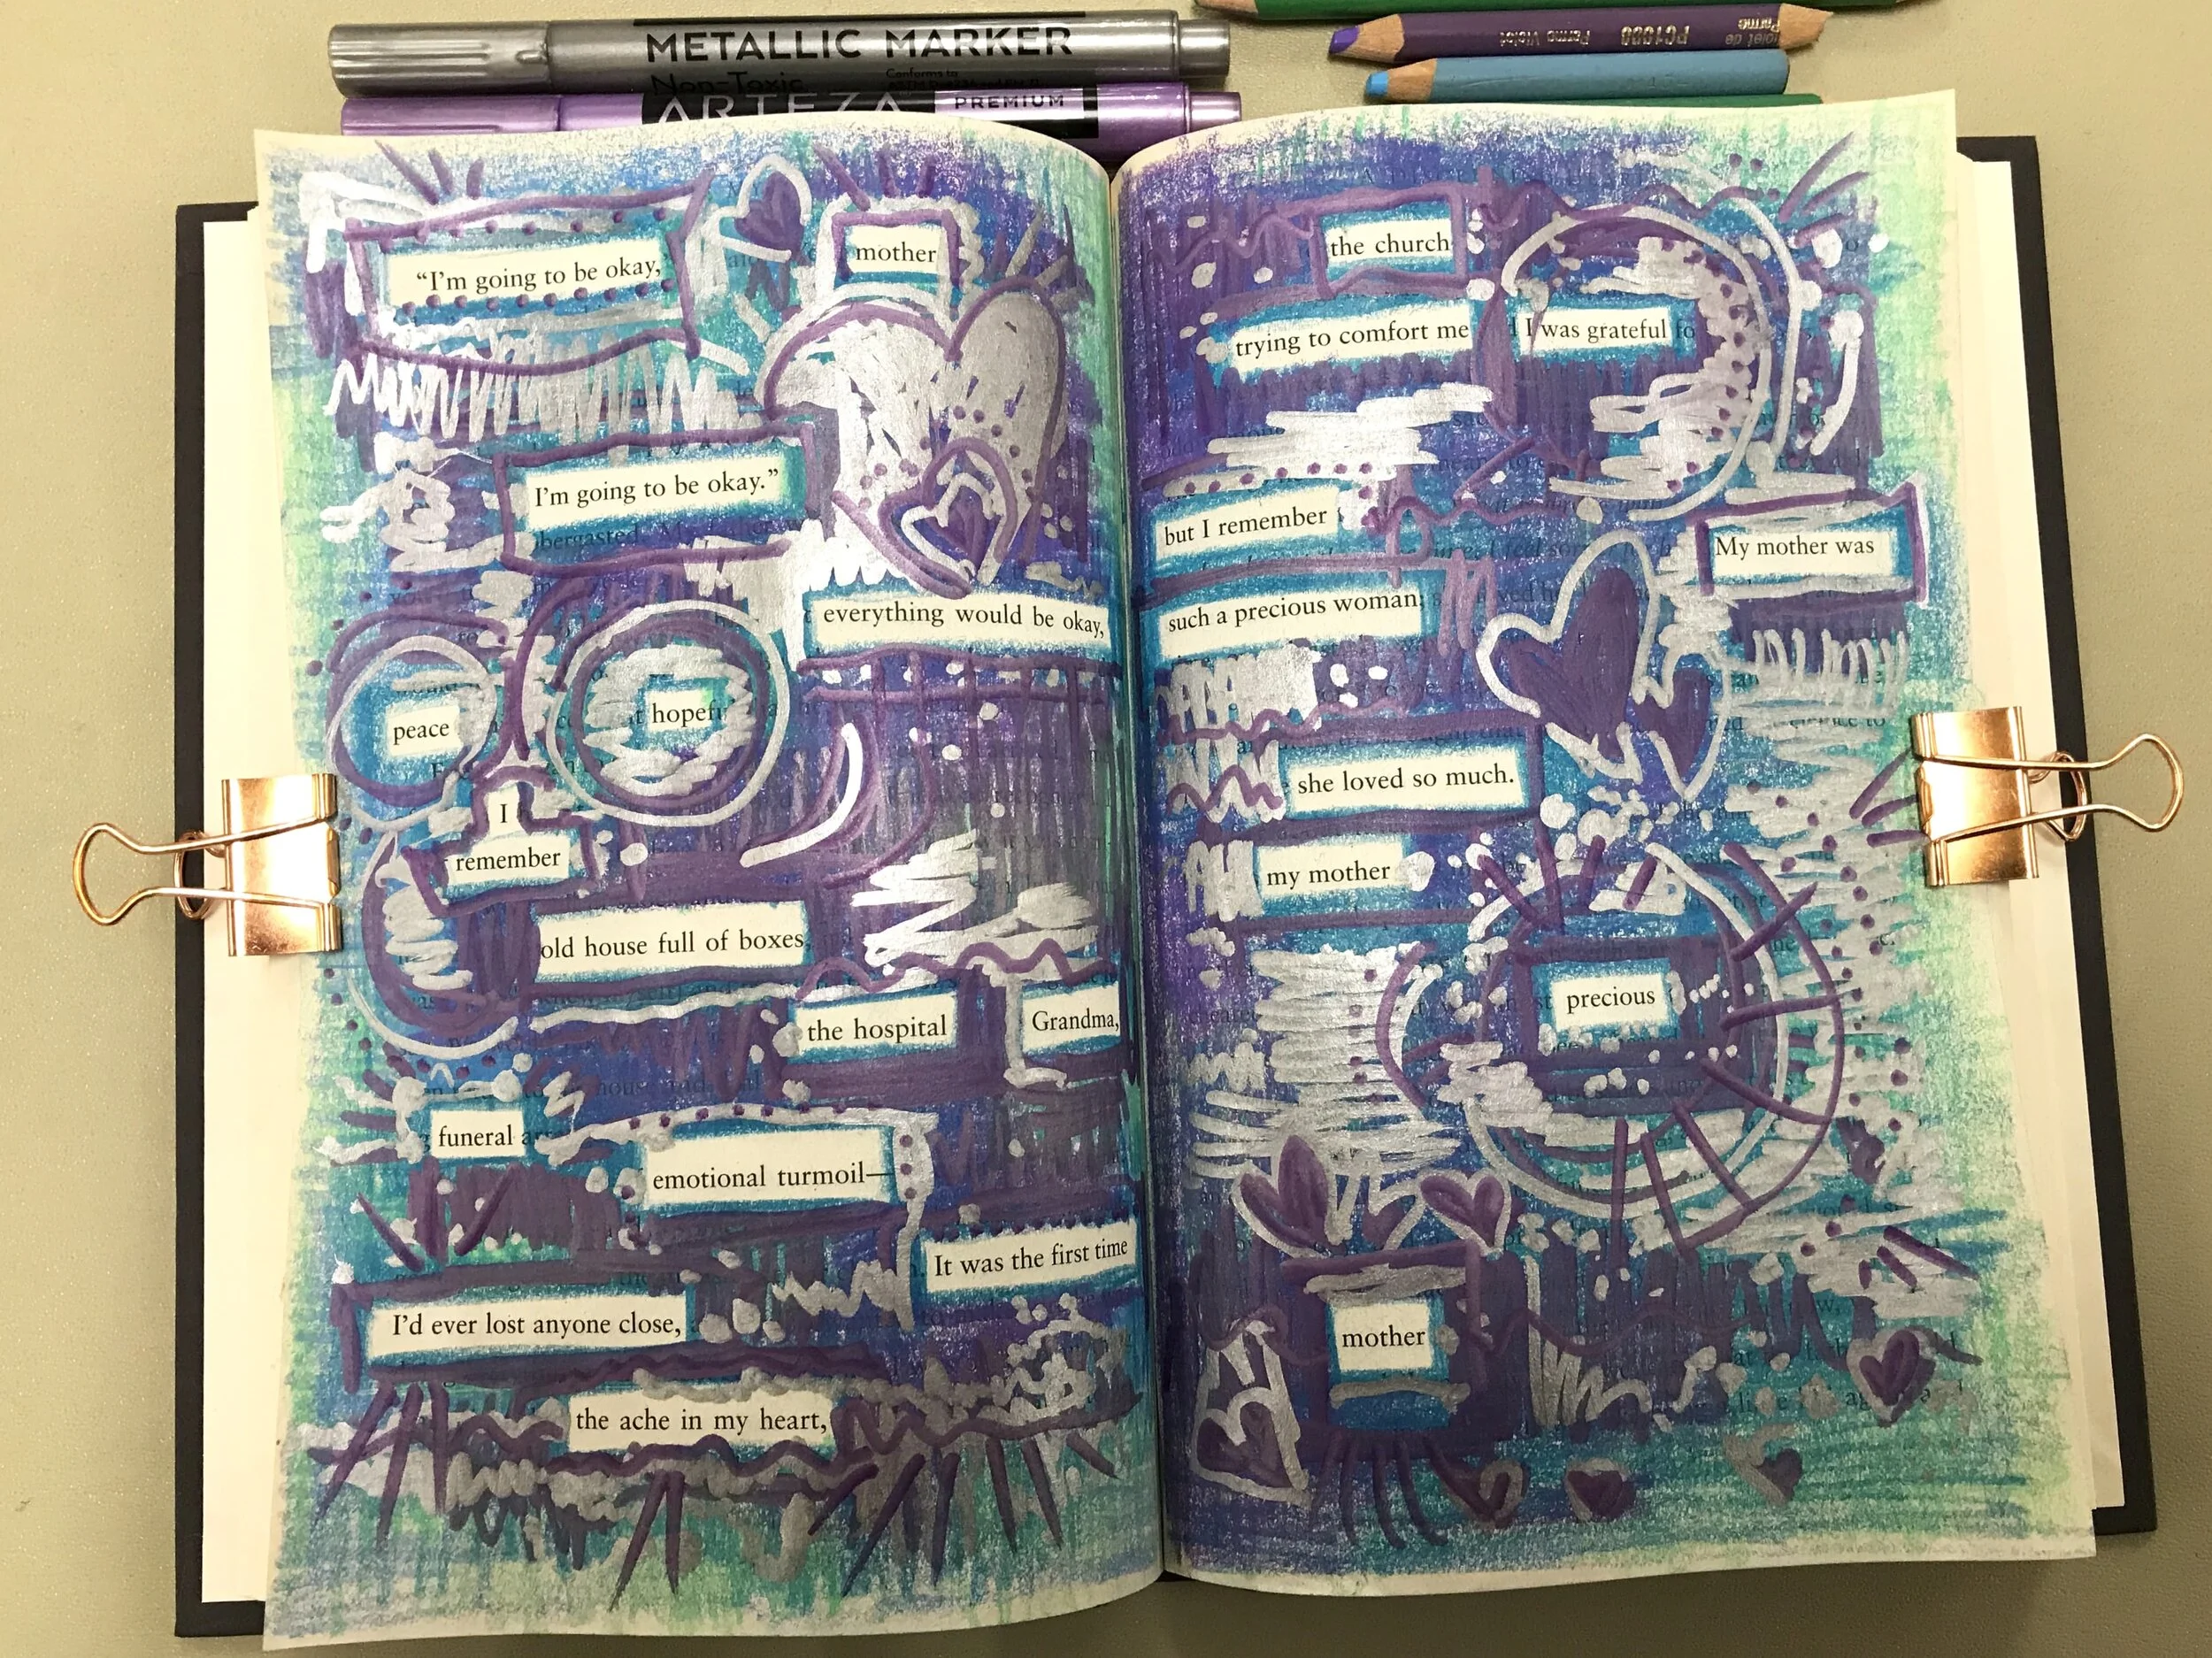 METALLIC MARKER
Non-Toxic
Conforms to
ARTEZA PREMIUM
PC1008 Parma Violet
“I'm going to be okay,”
mother
I'm going to be okay.”
everything would be okay,
peace
hopeful
I
remember
old house full of boxes
the hospital
Grandma,
funeral
emotional turmoil—
It was the first time
I'd ever lost anyone close,
the ache in my heart,
the church
trying to comfort me
I was grateful
but I remember
My mother was
such a precious woman;
she loved so much.
my mother
precious
mother